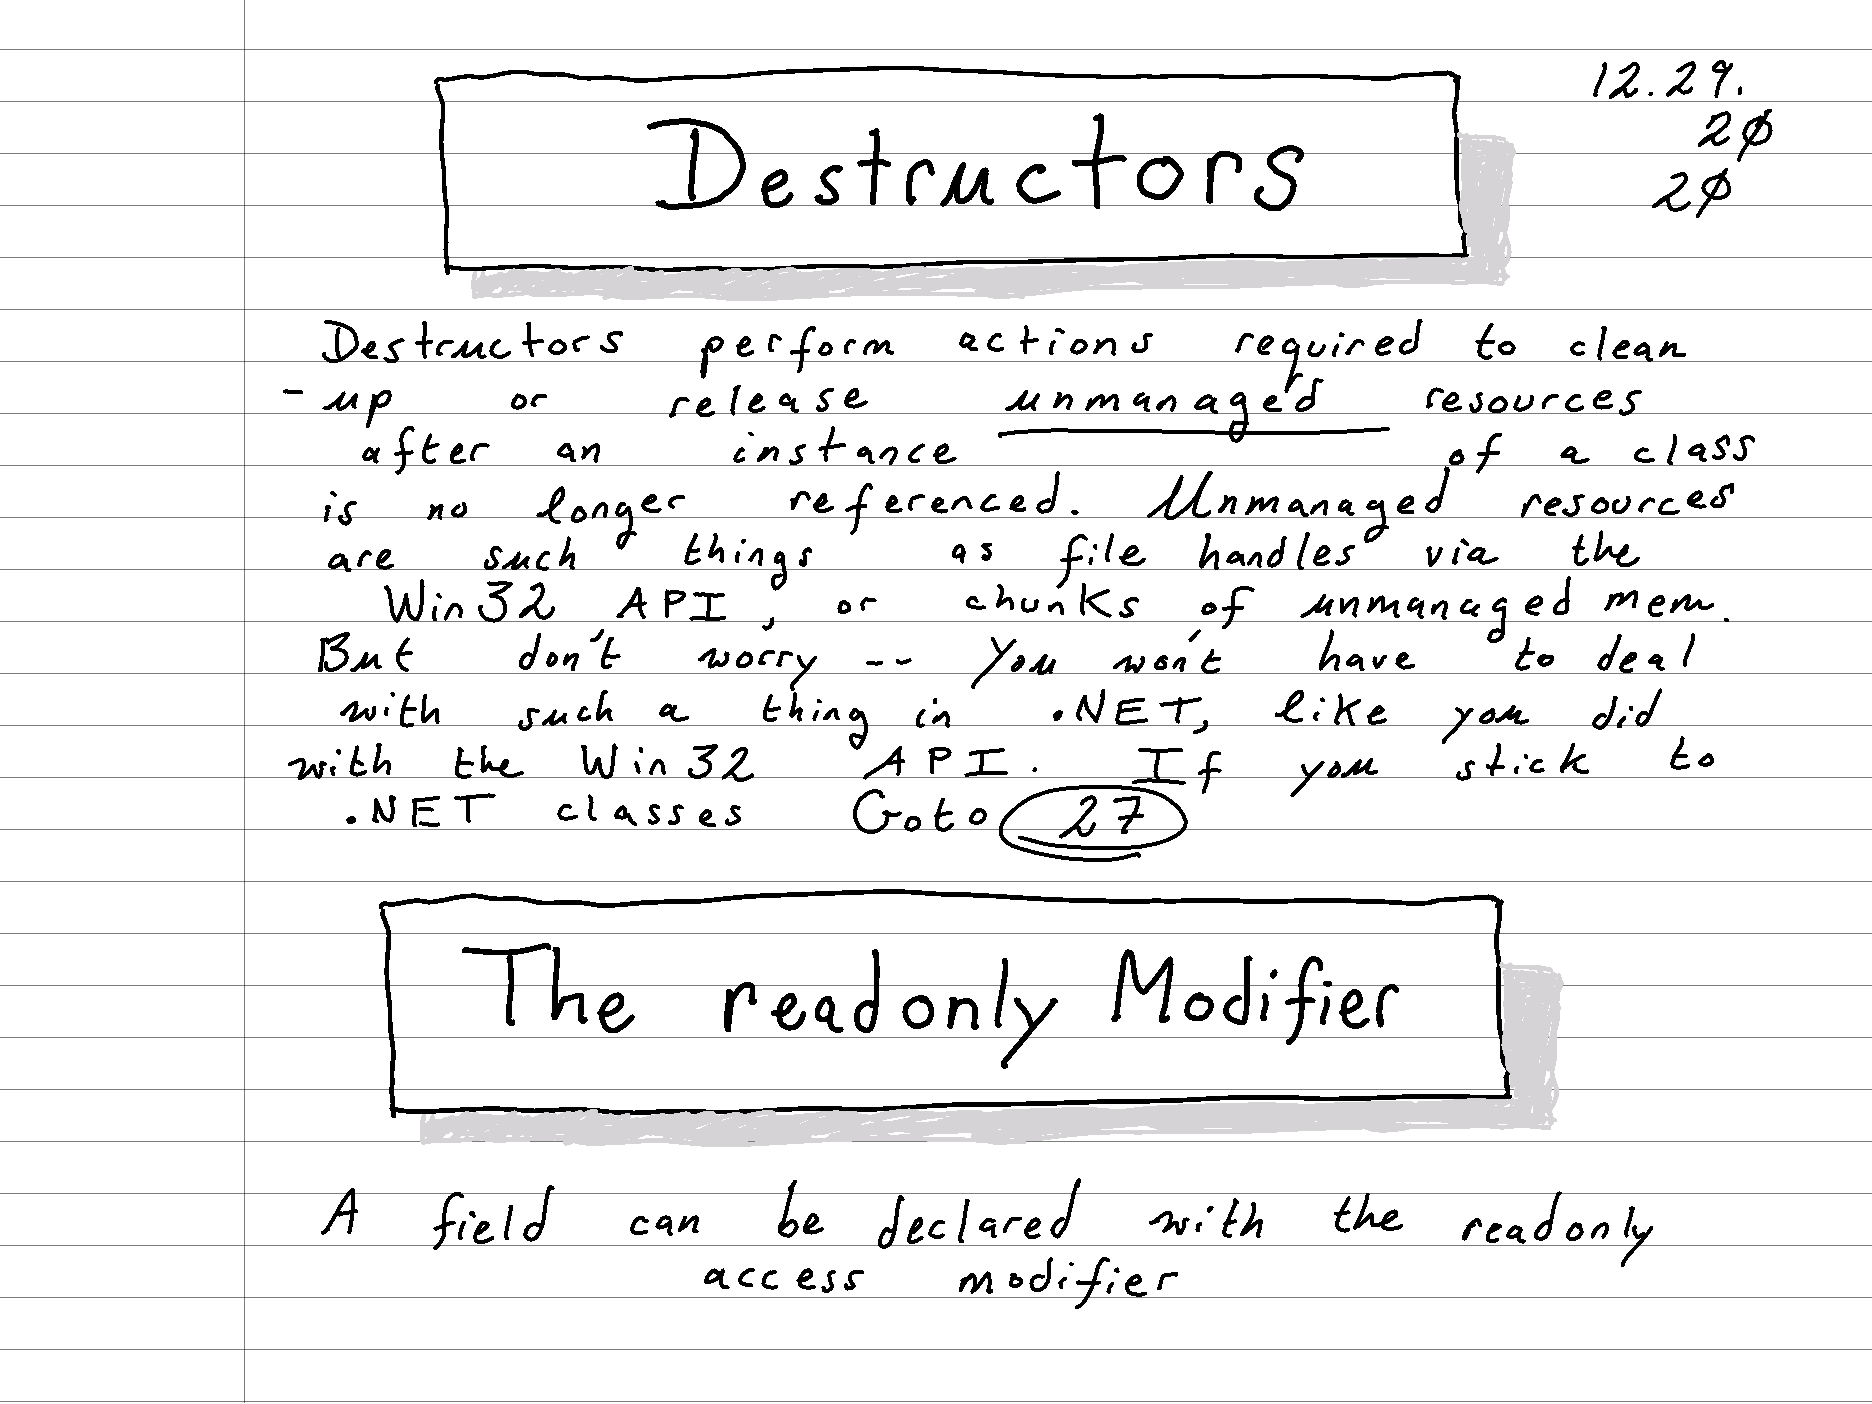 Destructors
12.29.
20
20
Destructors perform actions required to clean
- up or release unmanaged resources
after an instance of a class
is no longer referenced. Unmanaged resources
are such things as file handles via the
Win32 API, or chunks of unmanaged mem.
But don't worry -- You won't have to deal
with such a thing in .NET, like you did
with the Win32 API. If you stick to
.NET classes Goto 27
The readonly Modifier
A field can be declared with the readonly
access modifier